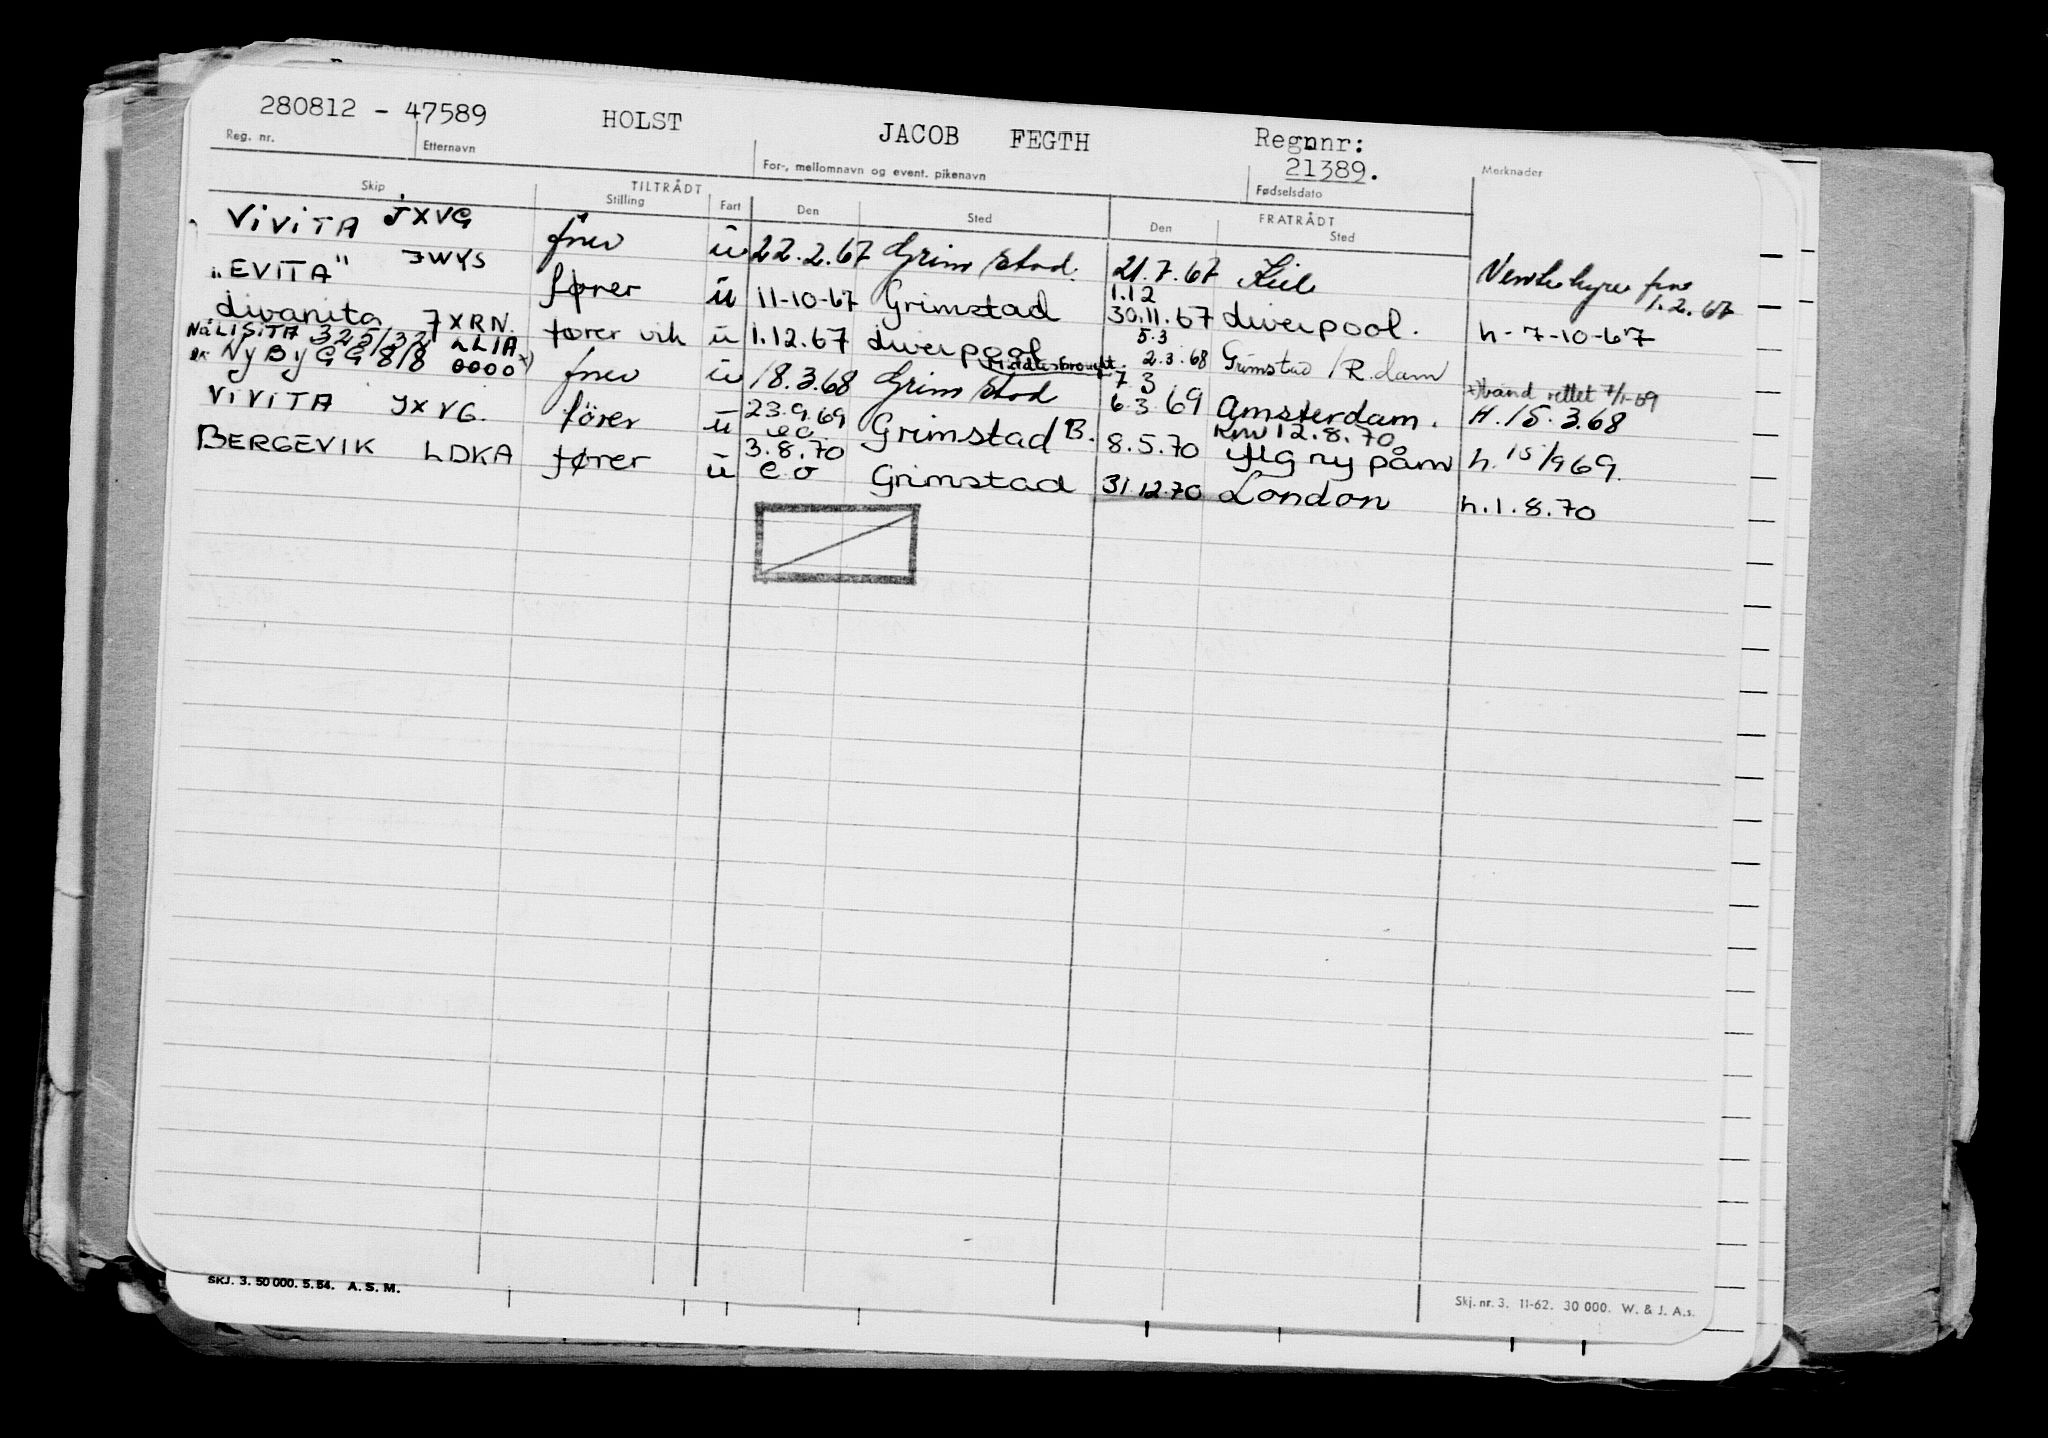 280812 - 47589 HOLST JACOB FEGTH Regnnr:
21389.
Reg. nr. Etternavn For-, mellomnavn og event. pikenavn Fødselsdato Merknader
Skip TILTRÅDT FRATRÅDT
Stilling Fart Den Sted Den Sted
ViViTA JXVG ü 22.2.67 Grimstad. 21.7.67 Kiel 1.2.67
"EVITA" JWYS fører ü 11-10-67 Grimstad 1.12
30.11.67 Liverpool. h-7-10-67
Livanita JXRN. fører vik ü 1.12.67 Liverpool 5.3
2.3.68 Grimstad / R.dam
NaLISITA 325/32 LLIA x)
NyByGG 8/8 0000 ü 18.3.68 Grimstad Middlesbrough. 7 3
6.3.69 Amsterdam. x) rettet 7/1-69
H.15.3.68
ViViTA JXVG. förer ü 23.9.69
eo Grimstad B. 8.5.70 12.8.70
ny påm h. 15/969.
BERGEVIK LDKA fører ü 3.8.70
e.o Grimstad 31.12.70 London h.1.8.70
SKJ. 3. 50 000. 5. 64. A. S. M.
Skj. nr. 3. 11-62. 30 000. W. & J. A.s.